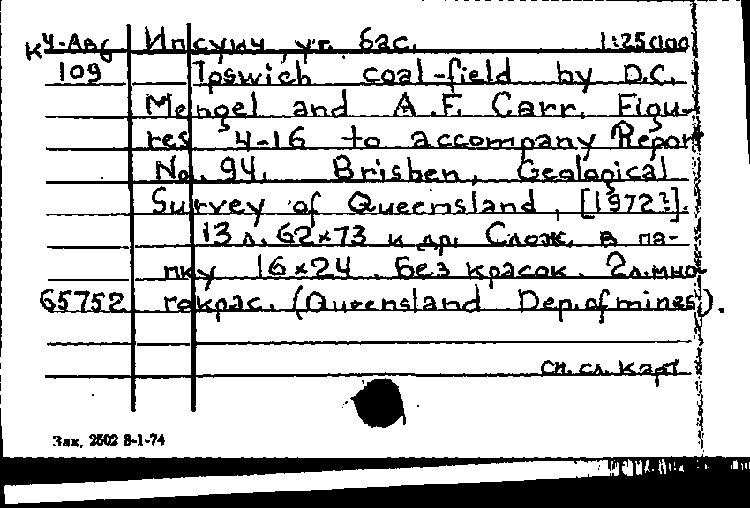 К4-Авб Ипсуич, уг. бас. 1:25000
109 Ipswich coal-field by D.C.
Mengel and A.F. Carr. Figu-
res 4-16 to accompany Repor
No. 94. Brisben, Geological
Survey of Queensland, [1972?].
13 л. 62x73 и др. Слож. в па-
пку 16x24. Без красок. 2л. мно-
65752 гокрас. (Queensland Dep. of mines).
сп. сл. карт
Зак. 2502 8-1-74